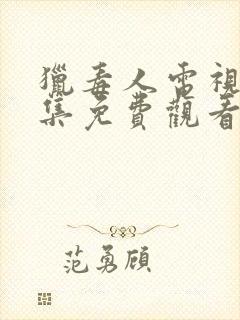 獵毒人電視
集免費觀看
范勇顧